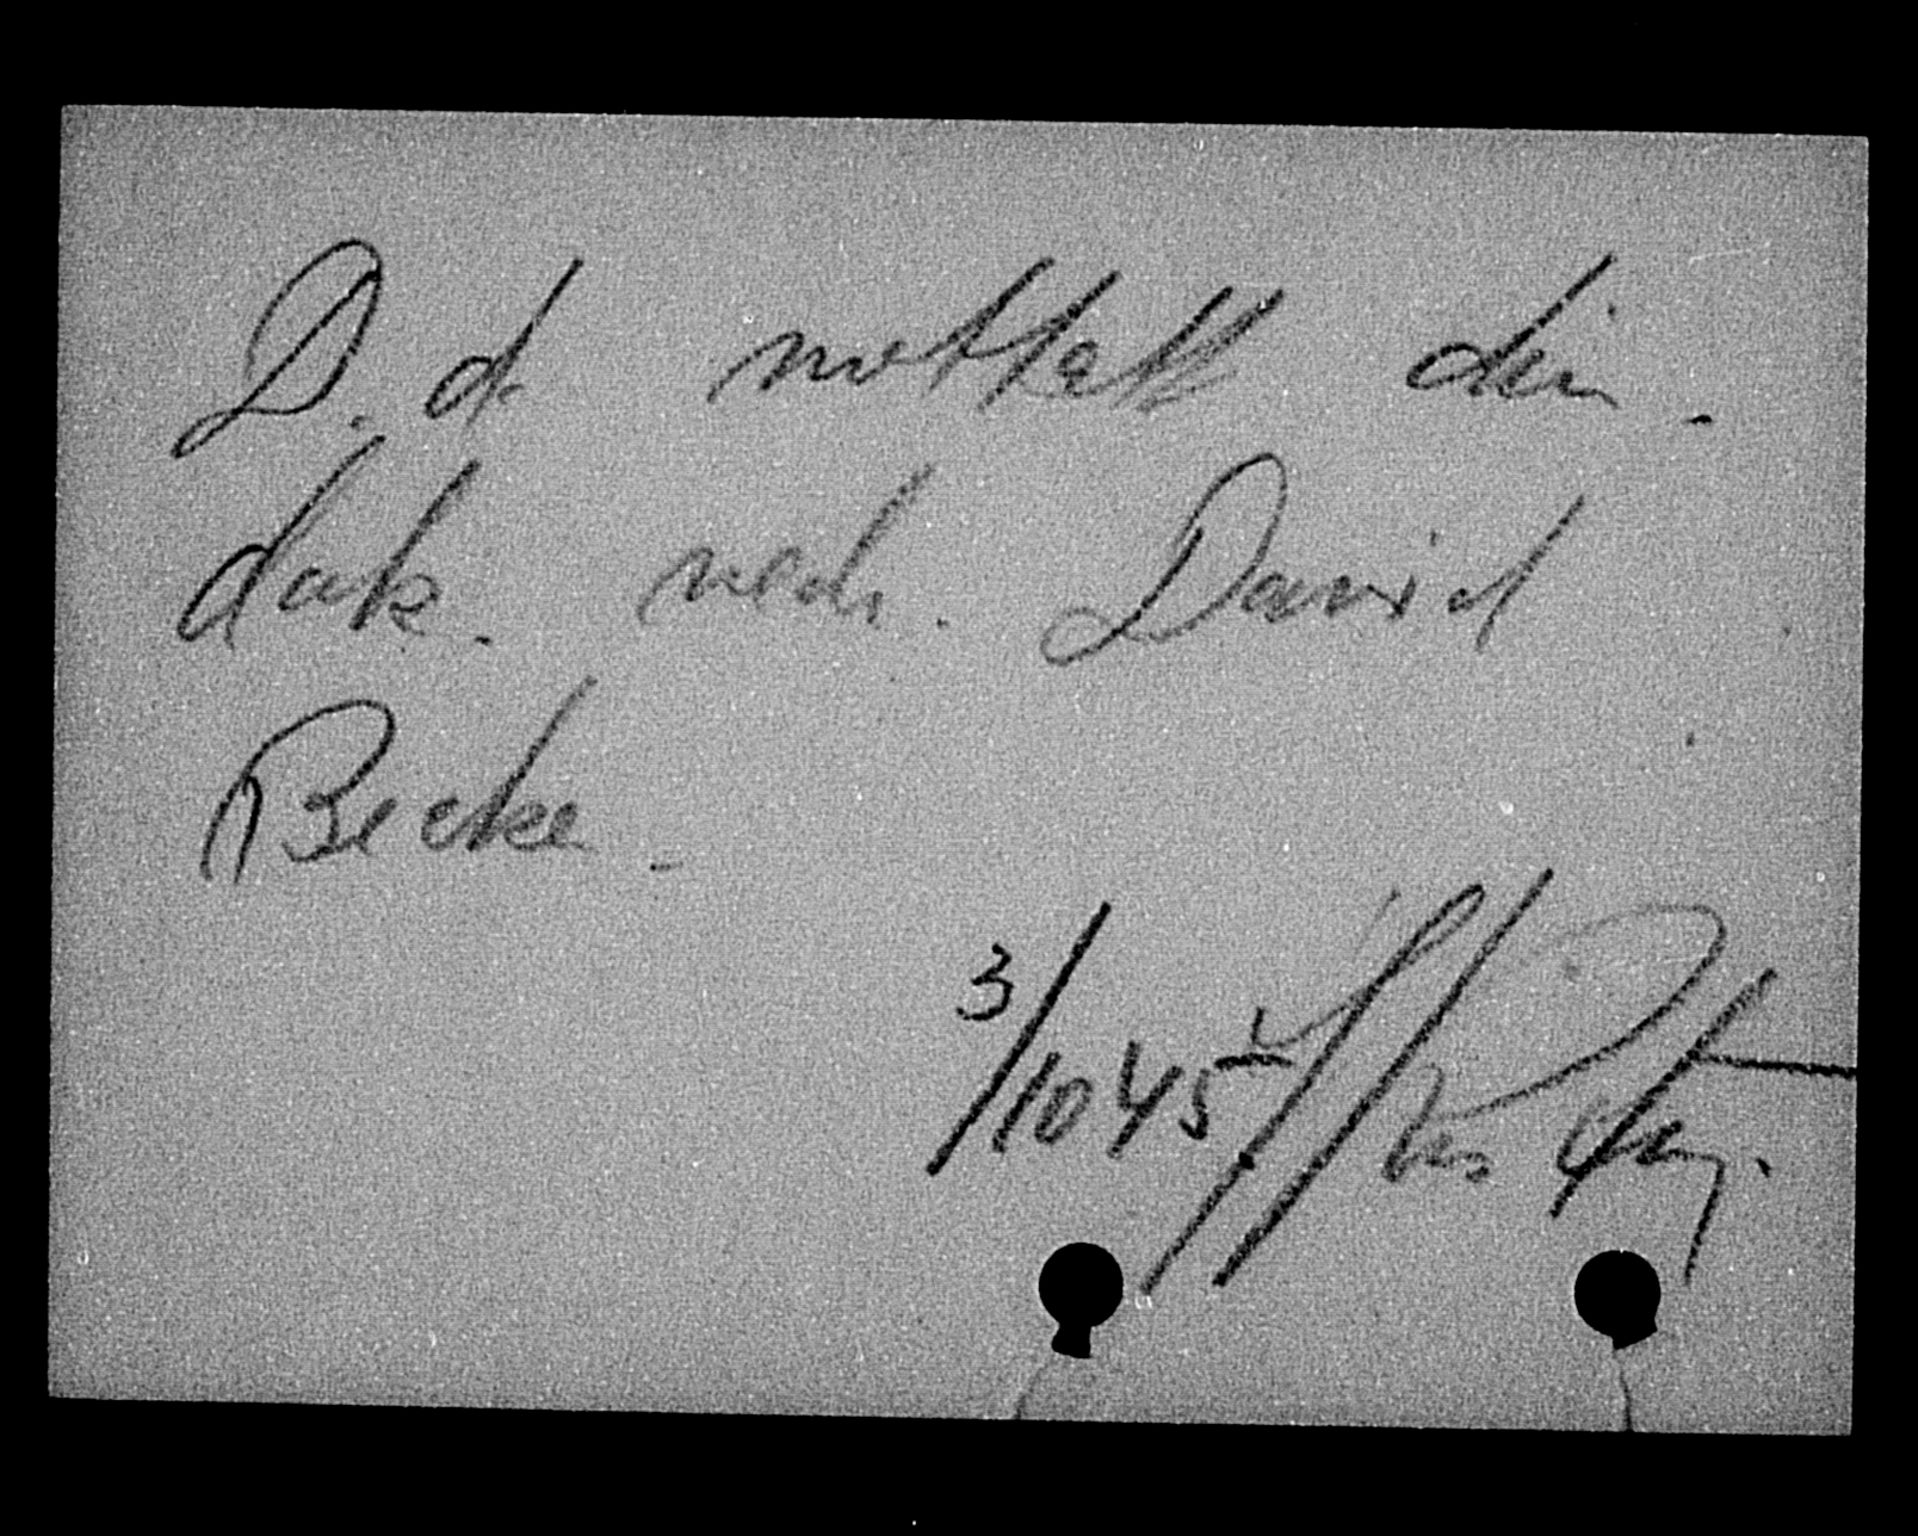 D. d. mottatt din
dok. vedr. David
Becke.
3/10 45